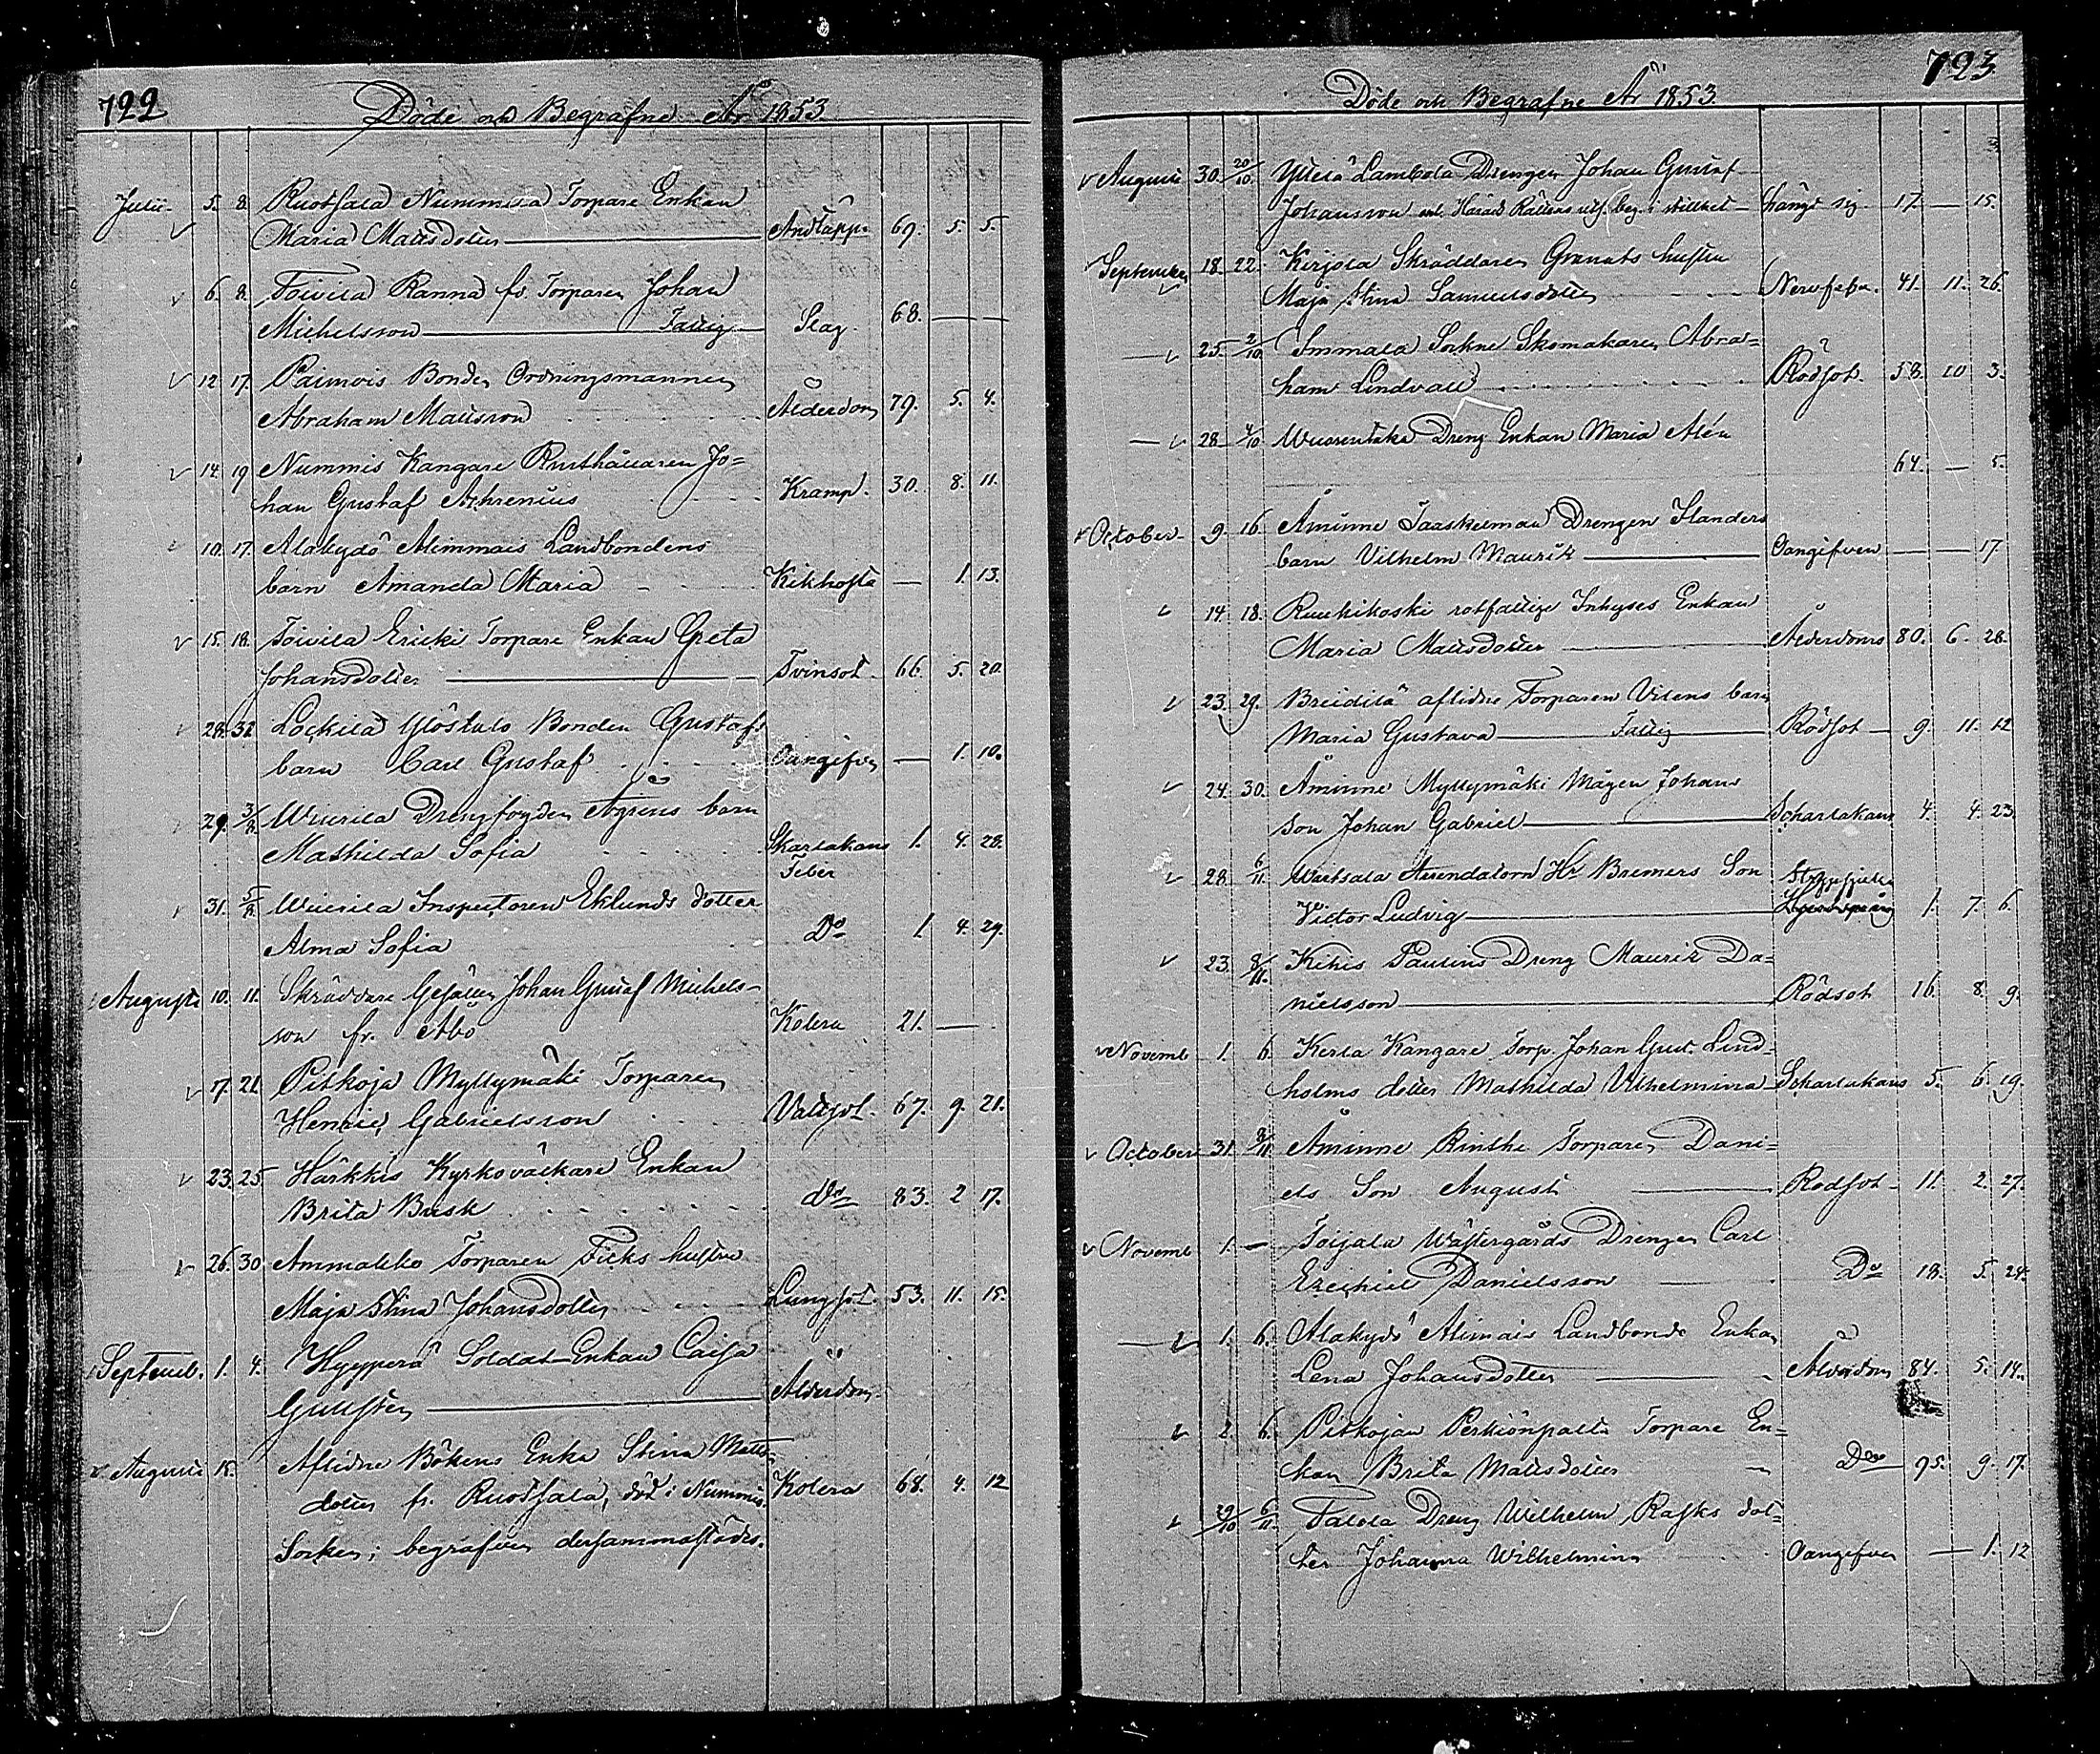 722
Döde och Begrafne År 1853
Julii 5. 8. Ruotsala Nummila Torpare Enkan
Maria Mattsdotter Andtäppa 69. 5. 5.
6. 8. Toivila Ranna fr. Torparen Johan
Michelsson Fattig Slag 68.
12 17. Paimois Bonden Ordningsmannen
Abraham Mattsson Ålderdom 79. 5. 4.
14. 19 Nummis Kangare Rusthållaren Jo=
han Gustaf Achrenius Kramp. 30. 8. 11.
10. 17. Alakydö Alimmais Landbondens
barn Amanda Maria Kikhosta — 1. 13.
15. 18. Toivila Ericki Torpare Enkan Greta
Johansdotter Tvinsot 66. 5. 20.
28. 31. Lockila Ylöstalo Bonden Gustafs
barn Carl Gustaf Oangifven — 1. 10.
29. 3/8. Wiurila Drengfogden Ågrens barn
Mathilda Sofia Skarlakans 1. 4. 28.
Feber
31. 5/8. Wiurila Inspectoren Eklunds dotter
Alma Sofia Do 1. 4. 29.
Augusti 10. 11. Skräddare Gesällen Johan Gustaf Michels-
son fr. Åbo Kolera 21. —
17. 21. Pitkoja Myllymäki Torparen
Henric Gabrielsson Vattsot. 67. 9. 21.
23. 25. Härkkis Kyrkoväckare Enkan
Brita Busk do 83. 2 17.
26. 30 Ammakko Torparen Ficks hustru
Maja Stina Johansdotter Lungsot 53. 11. 15.
Septemb. 1. 4. Hyyperä Soldat Enkan Caisa
Gullsten Ålderdom
Augusti 15. Aflidne Bökens Enka Stina Matts-
dotter fr. Ruotsala, död i Nummis Kolera 68. 4. 12
Socken; begrafven dersammastädes.
723
Döde och Begrafne År 1853.
Augusti 30. 20/10 Ylleis Lambola Drengen Johan Gustaf
Johansson enl. Härads Rättens utsl. beg. i stillhet hängt sig 17. — 15.
September 18. 22. Kirjola Skräddaren Granats hustru
Maja Stina Samuelsdotter Nervfeber. 41. 11. 26.
25. 2/10 Immala Sockne Skomakaren Abra=
ham Lindvall Rödsot 58. 10 3.
28. 4/10 Wuorentaka Dreng Enkan Maria Alén
64. — 5.
October 9. 16. Åminne Jaaskelman Drengen Flanders
barn Vilhelm Maurits Oangifven — — 17.
14. 18. Ruukikoski rotfattige Inhyses Enkan
Maria Mattsdotter Ålderdoms 80. 6. 28.
23. 29. Breidilä aflidne Torparen Vilens barn
Maria Gustava Fattig Rödsot 9. 11. 12
24. 30. Åminne Myllymäki Mågen Johans
Son Johan Gabriel Scharlakans 4. 4. 23.
28. 6/11. Wiitsala Arrendatorn Hr Bremers Son
Victor Ludvig Strypsjuka 1. 7. 6.
23. 8/11. Kihis Paulins Dreng Maurits Da=
nielsson Rödsot 16. 8. 9.
Novemb 1. 6. Kerla Kangare Torp. Johan Gust. Lind-
holms dotter Mathilda Vilhelmina Scharlakans 5. 6. 19.
October 31. 8/11 Åminne Rinshe Torparen Dani=
els Son August Rödsot 11 2. 27.
Novemb 1. — Toijala Wästergårds Drengen Carl
Ezechiel Danielsson Do 18. 5. 24.
1. 6. Alakydö Alimais Landbonde Enkan
Lena Johansdotter Ålderdom 84. 5. 14.
2. 6. Pitkojan Perkiönpalta Torpare En=
kan Brita Mattsdotter Do 95. 9. 17.
29/10 6/11. Talola Dreng Wilhelm Rasks dot=
ter Johanna Wilhelmina Oangifven — 1. 12